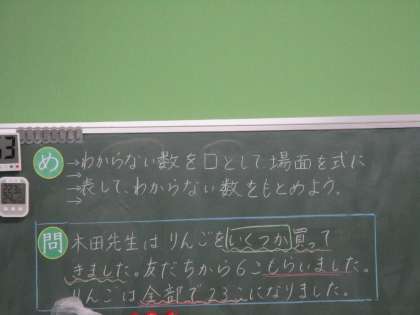 め →わからない数を□として場面を式に
→表して、わからない数をもとめよう。
→
問 木田先生はりんごをいくつか買って
きました。友だちから6こもらいました。
りんごは全部で23こになりました。